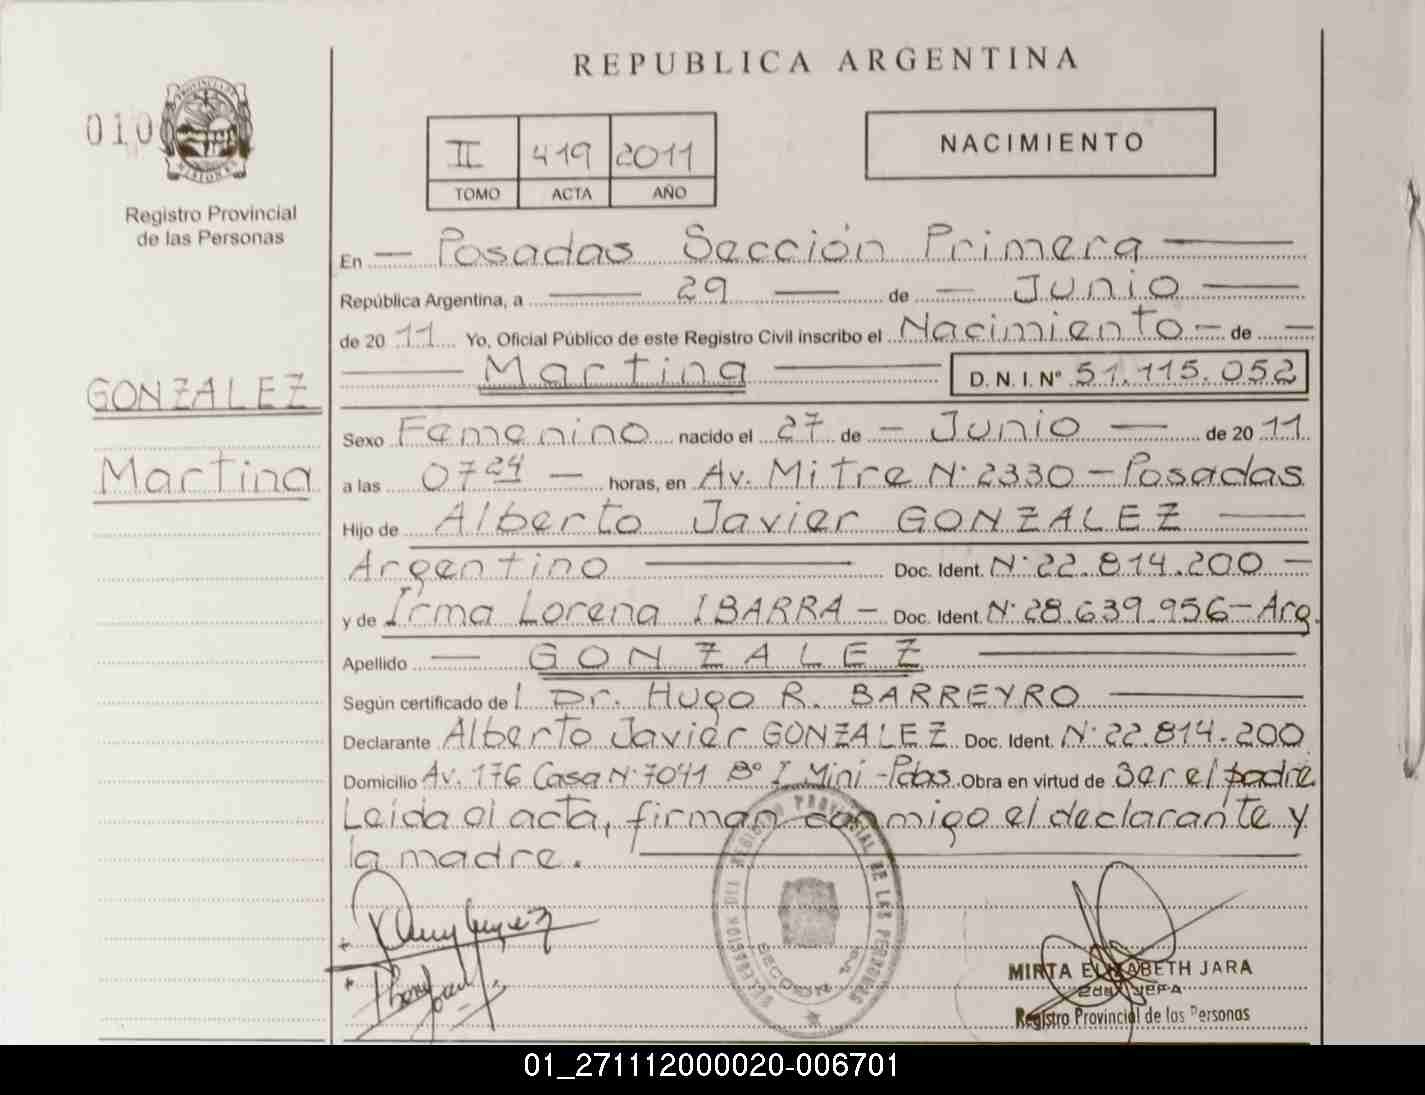 REPUBLICA ARGENTINA
010
II 419 2011
TOMO ACTA AÑO
NACIMIENTO
Registro Provincial
de las Personas
En — Posadas Sección Primera —
República Argentina, a — 29 — de — Junio —
de 20 11 Yo, Oficial Público de este Registro Civil inscribo el Nacimiento — de —
— Martina — D. N. I. Nº 51.115.052
GONZALEZ
Martina
Sexo Femenino nacido el 27 de — Junio — de 20 11
a las 07 24 — horas, en Av. Mitre Nº 2330 — Posadas
Hijo de Alberto Javier GONZALEZ —
Argentino — Doc. Ident. Nº 22.814.200 —
y de Irma Lorena IBARRA — Doc. Ident. Nº 28.639.956 — Arg.
Apellido — GONZALEZ —
Según certificado de l Dr. Hugo R. BARREYRO —
Declarante Alberto Javier GONZALEZ Doc. Ident. Nº 22.814.200
Domicilio Av. 176 Casa Nº 7041 Bº I Mini - Pdas Obra en virtud de Ser el padre
Leida el acta, firman conmigo el declarante y
la madre. —
REGISTRO PROVINCIAL DE LAS PERSONAS
MIRTA ELIZABETH JARA
2da JEFA
Registro Provincial de las Personas
01_271112000020-006701